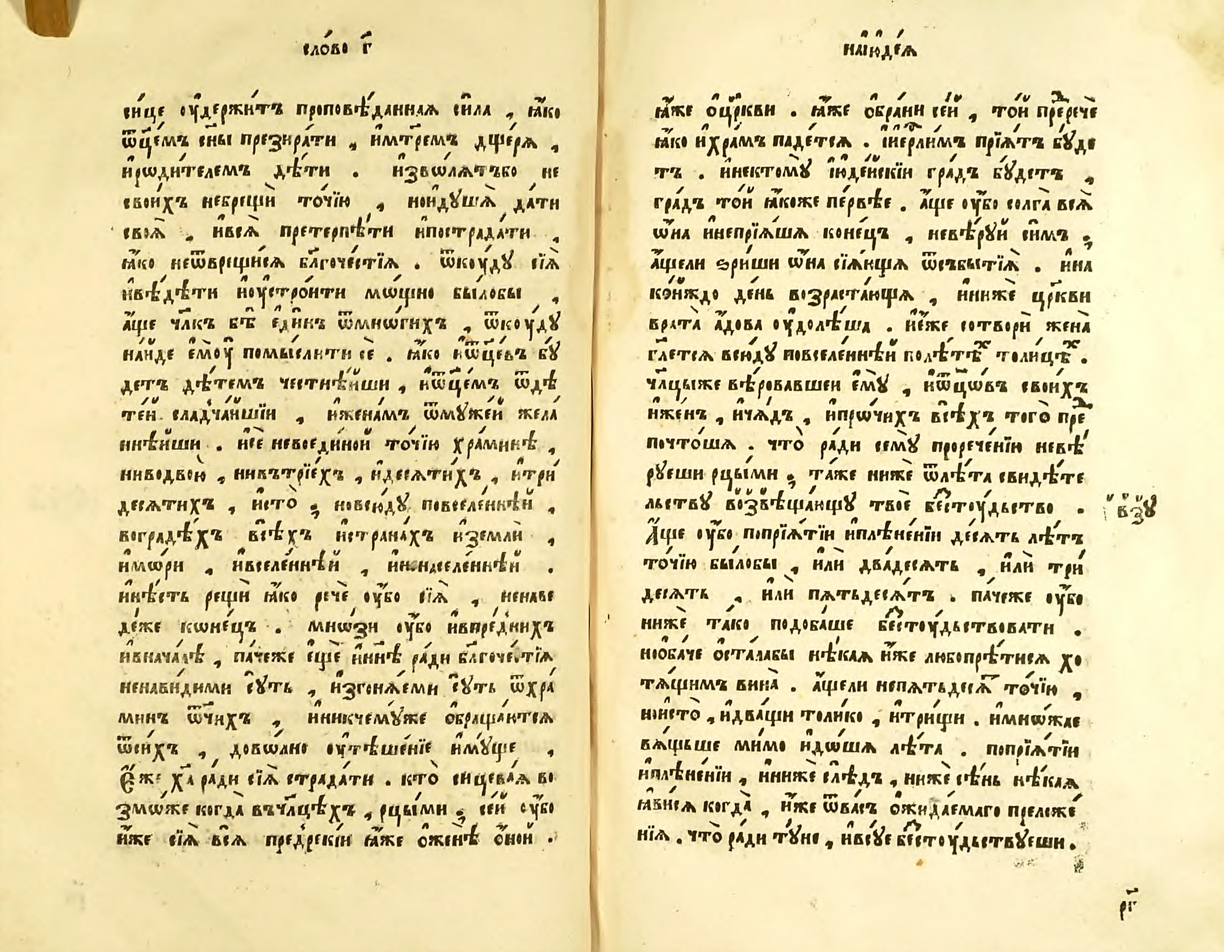 сло́во г҃
сице ᲂу҆держи́тъ проповѣ́даннаѧ си́ла , ꙗ҆́ко
ѿц҃е́мъ сн҃ы презира́ти , и҆мт҃ремъ дщерѧ ,
и҆рѡди́телемъ дѣ́ти . и҆звѡлѧ́тъбо не
свои́хъ небрещѝ то́чїю , ноидꙋшѧ̀ да́ти
своѧ̀ , и҆всѧ̀ претерпѣ́ти и҆пострада́ти ,
ꙗ҆́ко неѿврещи́сѧ бл҃гоче́стїѧ . ѿкᲂу́дꙋ сїѧ̀
и҆вѣ́дѣти и҆оустро́ити мо́щно бы́лобы ,
а҆́ще чл҃къ бѣ̀ є҆ди́нъ ѿмнѡ́гихъ , ѿкᲂу́дꙋ
на́йде є҆мᲂу̀ помы́слити сѐ . ꙗ҆́ко и҆ѿц҃євъ бꙋ́
детъ дѣ́темъ честнѣ́йши , и҆ѿц҃е́мъ ѿдѣ
те́й сладча́йшїи , и҆жена́мъ ѿмꙋже́й жела
ннѣ́йши . и҆сѐ невоеди́ной то́чїю хра́минѣ ,
ниводвою̀ , нивътрїе́хъ , и҆десѧти́хъ , и҆три́
десѧтихъ , и҆сто̀ ; новсю́дꙋ повселе́ннѣй ,
воградѣ́хъ всѣ́хъ и҆страна́хъ и҆землѝ ,
и҆мо́ри , и҆вселе́ннѣй , и҆ненаселе́ннѣй .
и҆нѣ́сть рещѝ ꙗ҆́ко речѐ ᲂу҆́бо сїѧ̀ , ненаве
де́же кѡне́цъ . мно́зи ᲂу҆́бо и҆впре́днихъ
и҆внача́лѣ , па́чеже є҆щѐ и҆нн҃ѣ ра́ди бл҃гоче́стїѧ
ненави́дими сꙋ́ть , и҆згонѧ́еми сꙋ́ть ѿхра́
минъ ѿч҃ихъ , и҆никчемꙋ́же ѡ҆браща́ютсѧ
ѿси́хъ , дово́лно ᲂу҆тѣше́нїе и҆мꙋ́ще ,
Є҆́же хⷭ҇а ра́ди сїѧ̀ страда́ти . кто̀ сицева́ѧ во
змо́же когда̀ въчл҃цѣ́хъ , рцы́ми ; се́й ᲂу҆́бо
и҆́же сїѧ̀ всѧ̀ предре́кїи ꙗ҆́же ѡ҆женѣ̀ ѻ҆́ной .
наїю҆де́ѧ
ꙗ҆́же ѡ҆цр҃кви . ꙗ҆́же ѡ҆бра́ни се́й , то́й предречѐ
ꙗ҆́ко и҆хра́мъ паде́тсѧ . и҆іерⷭ҇лимъ прїѧ́тъ бꙋ́де
тъ . и҆нектомꙋ̀ і҆юде́искїи гра́дъ бꙋ́детъ ,
гра́дъ то́й ꙗ҆́коже пе́рвѣе . а҆́ще ᲂу҆́бо солга̀ всѧ̀
ѡ҆́на и҆непрїѧ́шѧ коне́цъ , невѣ́рꙋй си́мъ ;
а҆́щели ѕри́ши ѡ҆́на сїѧ́ющѧ ѿсъбытїѧ̀ . и҆на
ко́йждо де́нь возраста́ющѧ , и҆нижѐ цр҃кви
врата̀ а҆́дова ᲂу҆долѣ́ша . и҆е҆́же сотворѝ жена̀
гл҃етсѧ всю́дꙋ повселе́ннѣй полѣ́тѣхъ толи́цѣхъ .
чл҃цыже вѣ́ровавшеи є҆мꙋ̀ , и҆ѿц҃ѡ́въ свои́хъ
и҆же́нъ , и҆ча́дъ , и҆про́чихъ всѣ́хъ того̀ пред
почто́шѧ . что̀ ра́ди семꙋ̀ прорече́нїю невѣ́
рꙋеши рцы́ми ; та́же нижѐ ѿлѣ́та свидѣ́те
льствꙋ возвѣща́ющꙋ твоѐ бестᲂу́дьство .
А҆́ще ᲂу҆́бо попрїѧ́тїи и҆плѣне́нїи де́сѧть лѣ́тъ
то́чїю бы́лобы , и҆лѝ два́десѧть , и҆лѝ три́
десѧть , и҆лѝ пѧтьдесѧ́тъ . па́чеже ᲂу҆́бо
нижѐ та́ко подоба́ше бестᲂу́дьствовати .
но̀ѻба́че ѡ҆ста́лабы нѣ́каѧ и҆́же любопрѣ́тисѧ хо
тѧ́щимъ вина̀ . а҆́щели непѧтьдесѧ́тъ то́чїю ,
ноисто̀ , и҆два́щи толи́ко , и҆три́щи . и҆мно́жае
вѧ́щьше ми́мо идо́шѧ лѣ́та . попрїѧ́тїи
и҆плѣне́нїи , и҆нижѐ слѣ́дъ , нижѐ сѣ́нь нѣ́каѧ
ꙗ҆ви́сѧ когда̀ , и҆́же ѿва́съ ѡ҆жида́емаго преложе́
нїѧ . что̀ ра́ди тꙋ́не , и҆всꙋ́е бестᲂу́дьствꙋеши .
взꙋ
рг҃